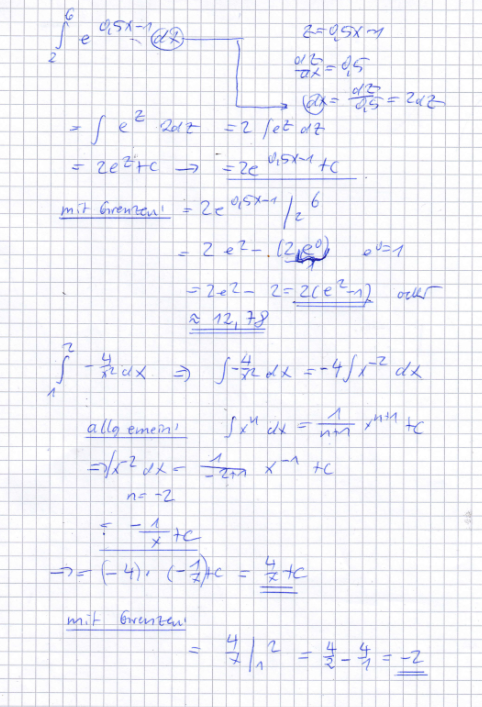 ∫₂⁶ e^(0,5x-1) dz   z = 0,5x-1
dz/dx = 0,5
dx = dz/0,5 = 2dz
= ∫ e^z · 2dz = 2 ∫ e^z dz
= 2e^z + c → = 2e^(0,5x-1) + c
mit Grenzen: = 2e^(0,5x-1) |₂⁶
= 2e² - (2·e⁰)   e⁰=1
1
= 2e² - 2 = 2(e²-1) oder
≈ 12,78
∫₁² -4/x² dx ⇒ ∫ -4/x² dx = -4 ∫ x⁻² dx
allgemein: ∫ xⁿ dx = 1/(n+1) x^(n+1) + c
⇒ ∫ x⁻² dx = 1/(-2+1) x⁻¹ + c
n = -2
= -1/x + c
⇒ = (-4) · (-1/x) + c = 4/x + c
mit Grenzen:
= 4/x |₁² = 4/2 - 4/1 = -2